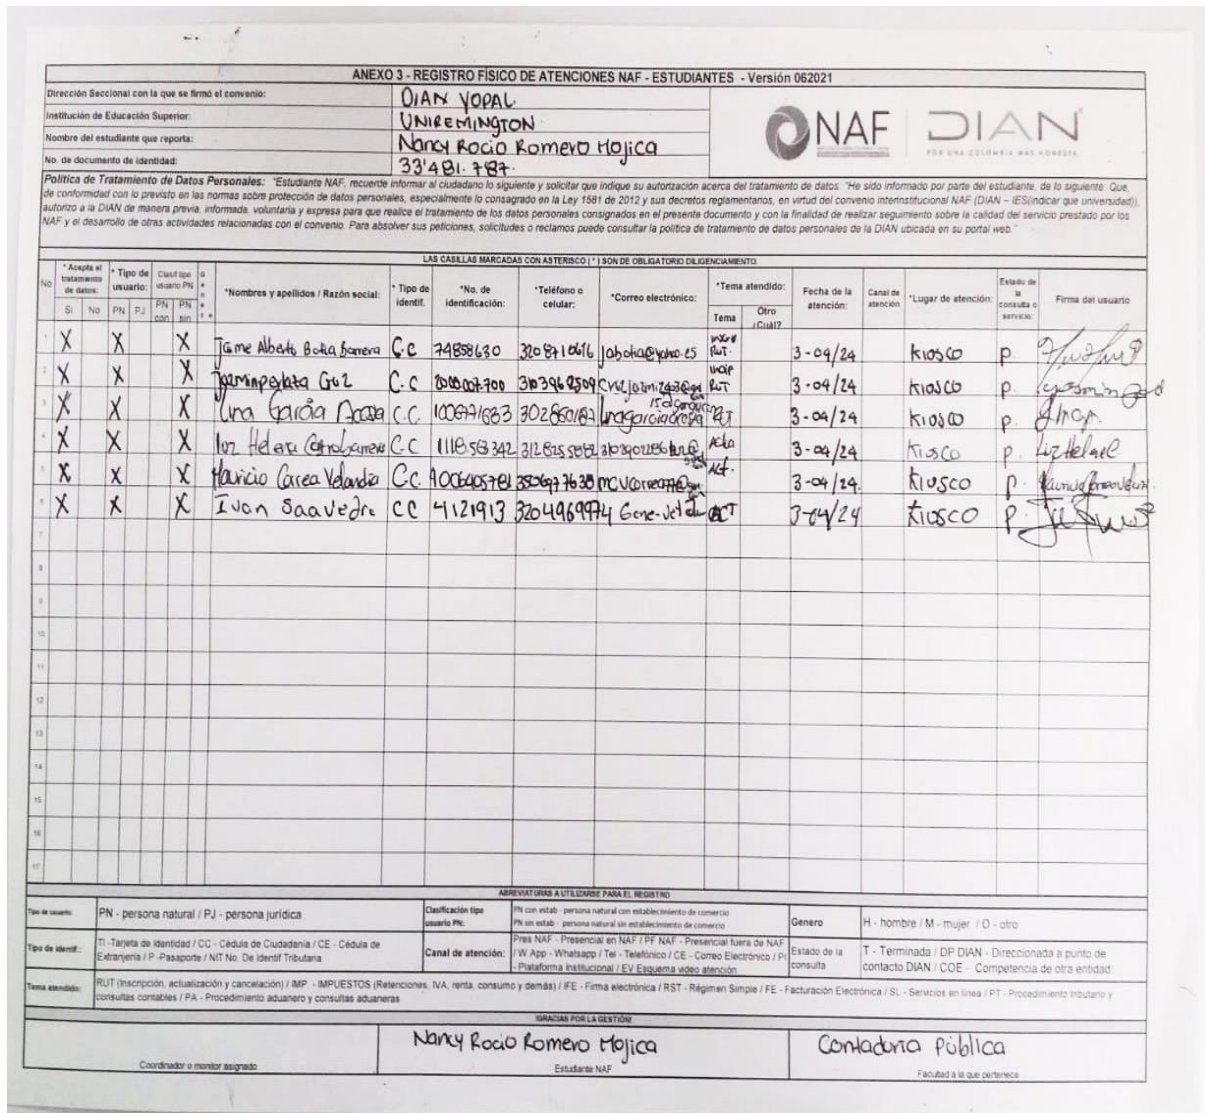 ANEXO 3 - REGISTRO FÍSICO DE ATENCIONES NAF - ESTUDIANTES - Versión 062021
Dirección Seccional con la que se firmó el convenio: DIAN YOPAL
Institución de Educación Superior: UNIREMINGTON
Nombre del estudiante que reporta: Nancy Rocio Romero Mojica
No. de documento de identidad: 33'481.787.
NAF DIAN
POR UNA COLOMBIA MÁS HONESTA
Política de Tratamiento de Datos Personales: "Estudiante NAF, recuerde informar al ciudadano lo siguiente y solicitar que indique su autorización acerca del tratamiento de datos: "He sido informado por parte del estudiante, de lo siguiente: Que,
de conformidad con lo previsto en las normas sobre protección de datos personales, especialmente lo consagrado en la Ley 1581 de 2012 y sus decretos reglamentarios, en virtud del convenio interinstitucional NAF (DIAN – IES(indicar que universidad)),
autorizo a la DIAN de manera previa, informada, voluntaria y expresa para que realice el tratamiento de los datos personales consignados en el presente documento y con la finalidad de realizar seguimiento sobre la calidad del servicio prestado por los
NAF y el desarrollo de otras actividades relacionadas con el convenio. Para absolver sus peticiones, solicitudes o reclamos puede consultar la política de tratamiento de datos personales de la DIAN ubicada en su portal web."
LAS CASILLAS MARCADAS CON ASTERISCO ( * ) SON DE OBLIGATORIO DILIGENCIAMIENTO.
No * Acepta el tratamiento de datos: Si No * Tipo de usuario: PN PJ Clasif tipo usuario PN PN con PN sin *Nombres y apellidos / Razón social: * Tipo de identif. *No. de identificación: *Teléfono o celular: *Correo electrónico: *Tema atendido: Tema Otro ¿Cuál? Fecha de la atención: Canal de atención *Lugar de atención: Estado de la consulta o servicio: Firma del usuario
1 X X X Jaime Alberto Botia Barrera C.C 74858630 3208710616 jabotia@yahoo.es RUT. 3-04/24 KIOSCO P.
2 X X X C.C 3-04/24 KIOSCO P.
3 X X X Lina García C.C. 3-04/24 KIOSCO P.
4 X X X Luz Helena C.C 3-04/24 KIOSCO P. Luz Helena
5 X X X Mauricio Correa Velandia C.C. Act. 3-04/24 KIOSCO P.
6 X X X Ivon Saavedra CC 4121913 3204969974 ACT 3-04/24 KIOSCO P.
7
8
9
10
11
12
13
14
15
16
17
ABREVIATURAS A UTILIZARSE PARA EL REGISTRO
Tipo de usuario: PN - persona natural / PJ - persona jurídica
Clasificación tipo usuario PN: PN con estab - persona natural con establecimiento de comercio
PN sin estab - persona natural sin establecimiento de comercio
Genero H - hombre / M - mujer / O - otro
Tipo de identif.: TI -Tarjeta de Identidad / CC - Cédula de Ciudadanía / CE - Cédula de
Extranjería / P -Pasaporte / NIT No. De Identif Tributaria
Canal de atención: Pres NAF - Presencial en NAF / PF NAF - Presencial fuera de NAF
/ W App - Whatsapp / Tel - Telefónico / CE - Correo Electrónico / PI
- Plataforma Institucional / EV Esquema video atención
Estado de la consulta T - Terminada / DP DIAN - Direccionada a punto de
contacto DIAN / COE - Competencia de otra entidad
Tema atendido: RUT (Inscripción, actualización y cancelación) / IMP - IMPUESTOS (Retenciones, IVA, renta, consumo y demás) / IFE - Firma electrónica / RST - Régimen Simple / FE - Facturación Electrónica / SL - Servicios en línea / PT - Procedimiento tributario y
consultas contables / PA - Procedimiento aduanero y consultas aduaneras
!GRACIAS POR LA GESTIÓN!
Nancy Rocio Romero Mojica
Contaduria Pública
Coordinador o monitor asignado
Estudiante NAF
Facultad a la que pertenece